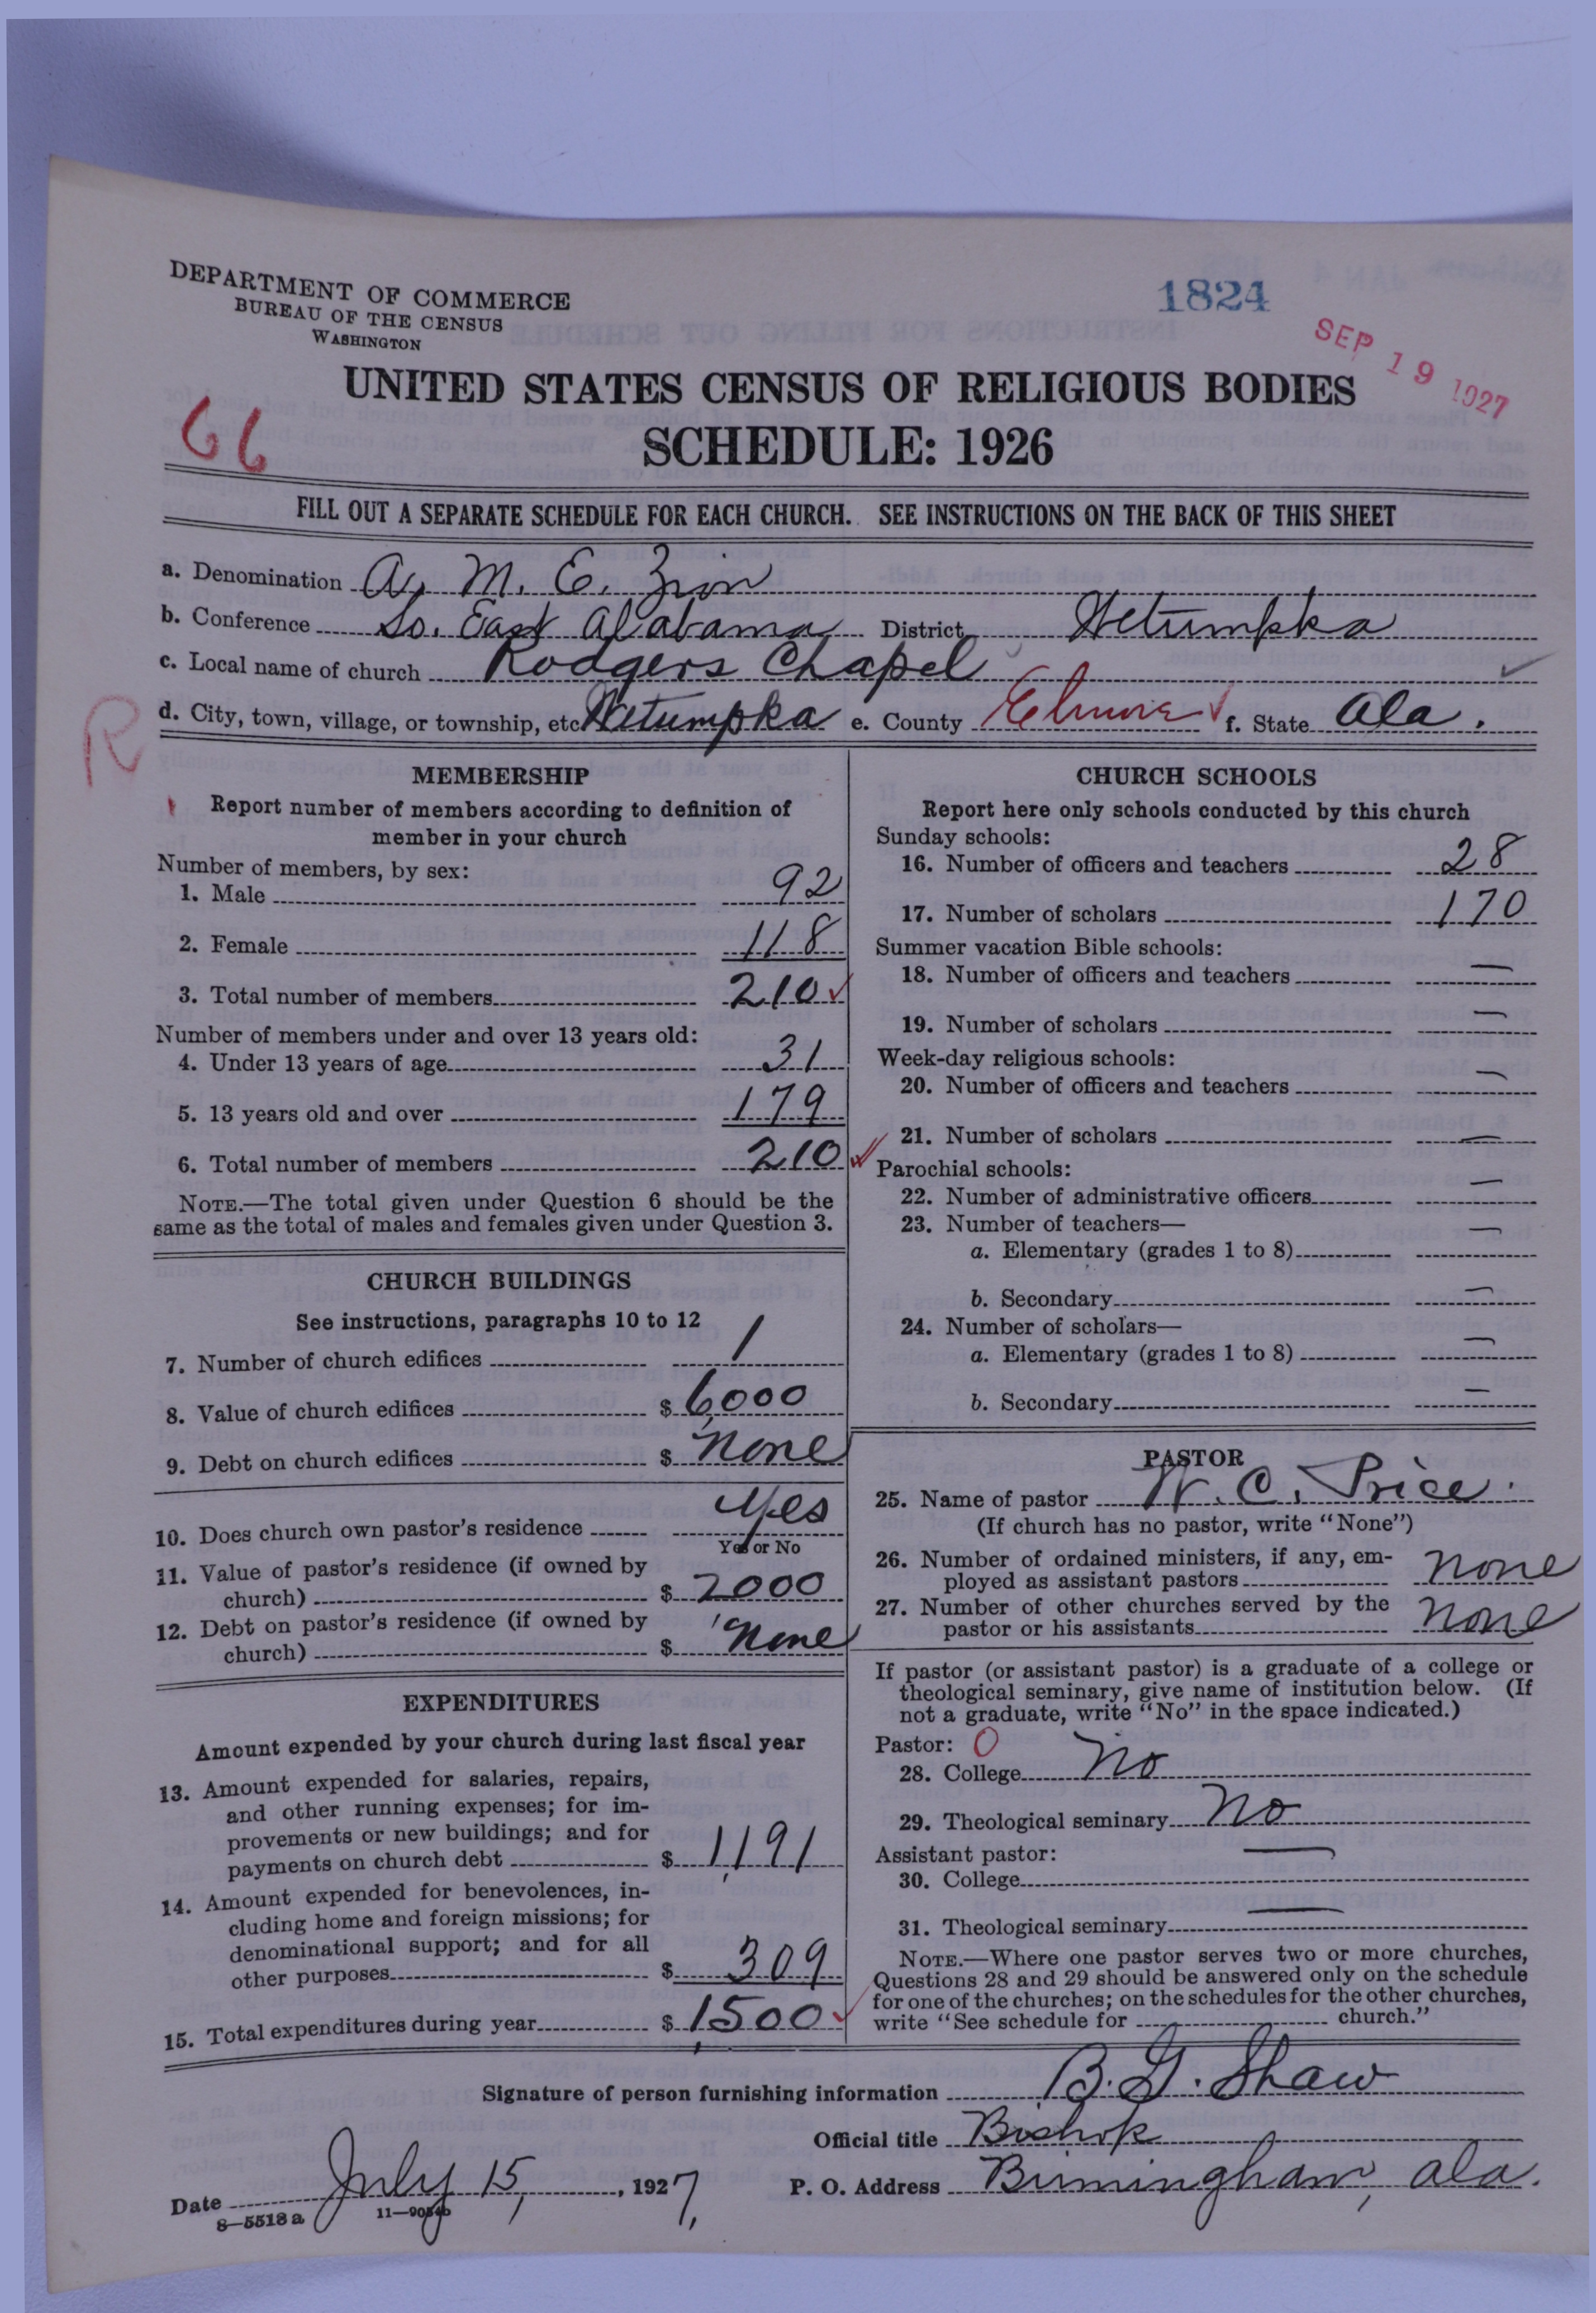 DEPARTMENT OF COMMERCE
BUREAU OF THE CENSUS
WASHINGTON
1824
SEP 19 1927
UNITED STATES CENSUS OF RELIGIOUS BODIES
66
SCHEDULE: 1926
FILL OUT A SEPARATE SCHEDULE FOR EACH CHURCH. SEE INSTRUCTIONS ON THE BACK OF THIS SHEET
a. Denomination A. M. E. Zion
b. Conference So. East Alabama District Wetumpka
c. Local name of church Rodgers Chapel ✓
d. City, town, village, or township, etc. Wetumpka e. County Elmore ✓ f. State Ala.
R
MEMBERSHIP
Report number of members according to definition of
member in your church
Number of members, by sex:
1. Male 92
2. Female 118
3. Total number of members 210 ✓
Number of members under and over 13 years old:
4. Under 13 years of age 31
5. 13 years old and over 179
6. Total number of members 210 ✓
NOTE.—The total given under Question 6 should be the
same as the total of males and females given under Question 3.
CHURCH BUILDINGS
See instructions, paragraphs 10 to 12
7. Number of church edifices 1
8. Value of church edifices $ 6,000
9. Debt on church edifices $ None
10. Does church own pastor's residence Yes
Yes or No
11. Value of pastor's residence (if owned by
church) $ 2000
12. Debt on pastor's residence (if owned by
church) $ None
EXPENDITURES
Amount expended by your church during last fiscal year
13. Amount expended for salaries, repairs,
and other running expenses; for im-
provements or new buildings; and for
payments on church debt $ 1,191
14. Amount expended for benevolences, in-
cluding home and foreign missions; for
denominational support; and for all
other purposes $ 309
15. Total expenditures during year $ 1,500 ✓
CHURCH SCHOOLS
Report here only schools conducted by this church
Sunday schools:
16. Number of officers and teachers 28
17. Number of scholars 170
Summer vacation Bible schools:
18. Number of officers and teachers —
19. Number of scholars —
Week-day religious schools:
20. Number of officers and teachers —
21. Number of scholars —
Parochial schools:
22. Number of administrative officers —
23. Number of teachers—
a. Elementary (grades 1 to 8) —
b. Secondary —
24. Number of scholars—
a. Elementary (grades 1 to 8) —
b. Secondary —
PASTOR
25. Name of pastor W. C. Price.
(If church has no pastor, write "None")
26. Number of ordained ministers, if any, em-
ployed as assistant pastors None
27. Number of other churches served by the
pastor or his assistants None
If pastor (or assistant pastor) is a graduate of a college or
theological seminary, give name of institution below. (If
not a graduate, write "No" in the space indicated.)
Pastor: 0
28. College No
29. Theological seminary No
Assistant pastor:
30. College —
31. Theological seminary —
NOTE.—Where one pastor serves two or more churches,
Questions 28 and 29 should be answered only on the schedule
for one of the churches; on the schedules for the other churches,
write "See schedule for church."
Signature of person furnishing information B. G. Shaw
Official title Bishop
Date July 15, 1927, P. O. Address Birmingham, Ala.
8—5518 a 11—9054b